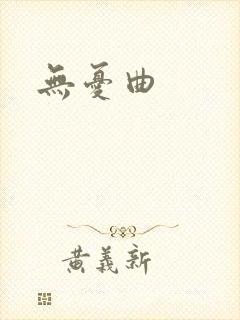 無憂曲
黄義新